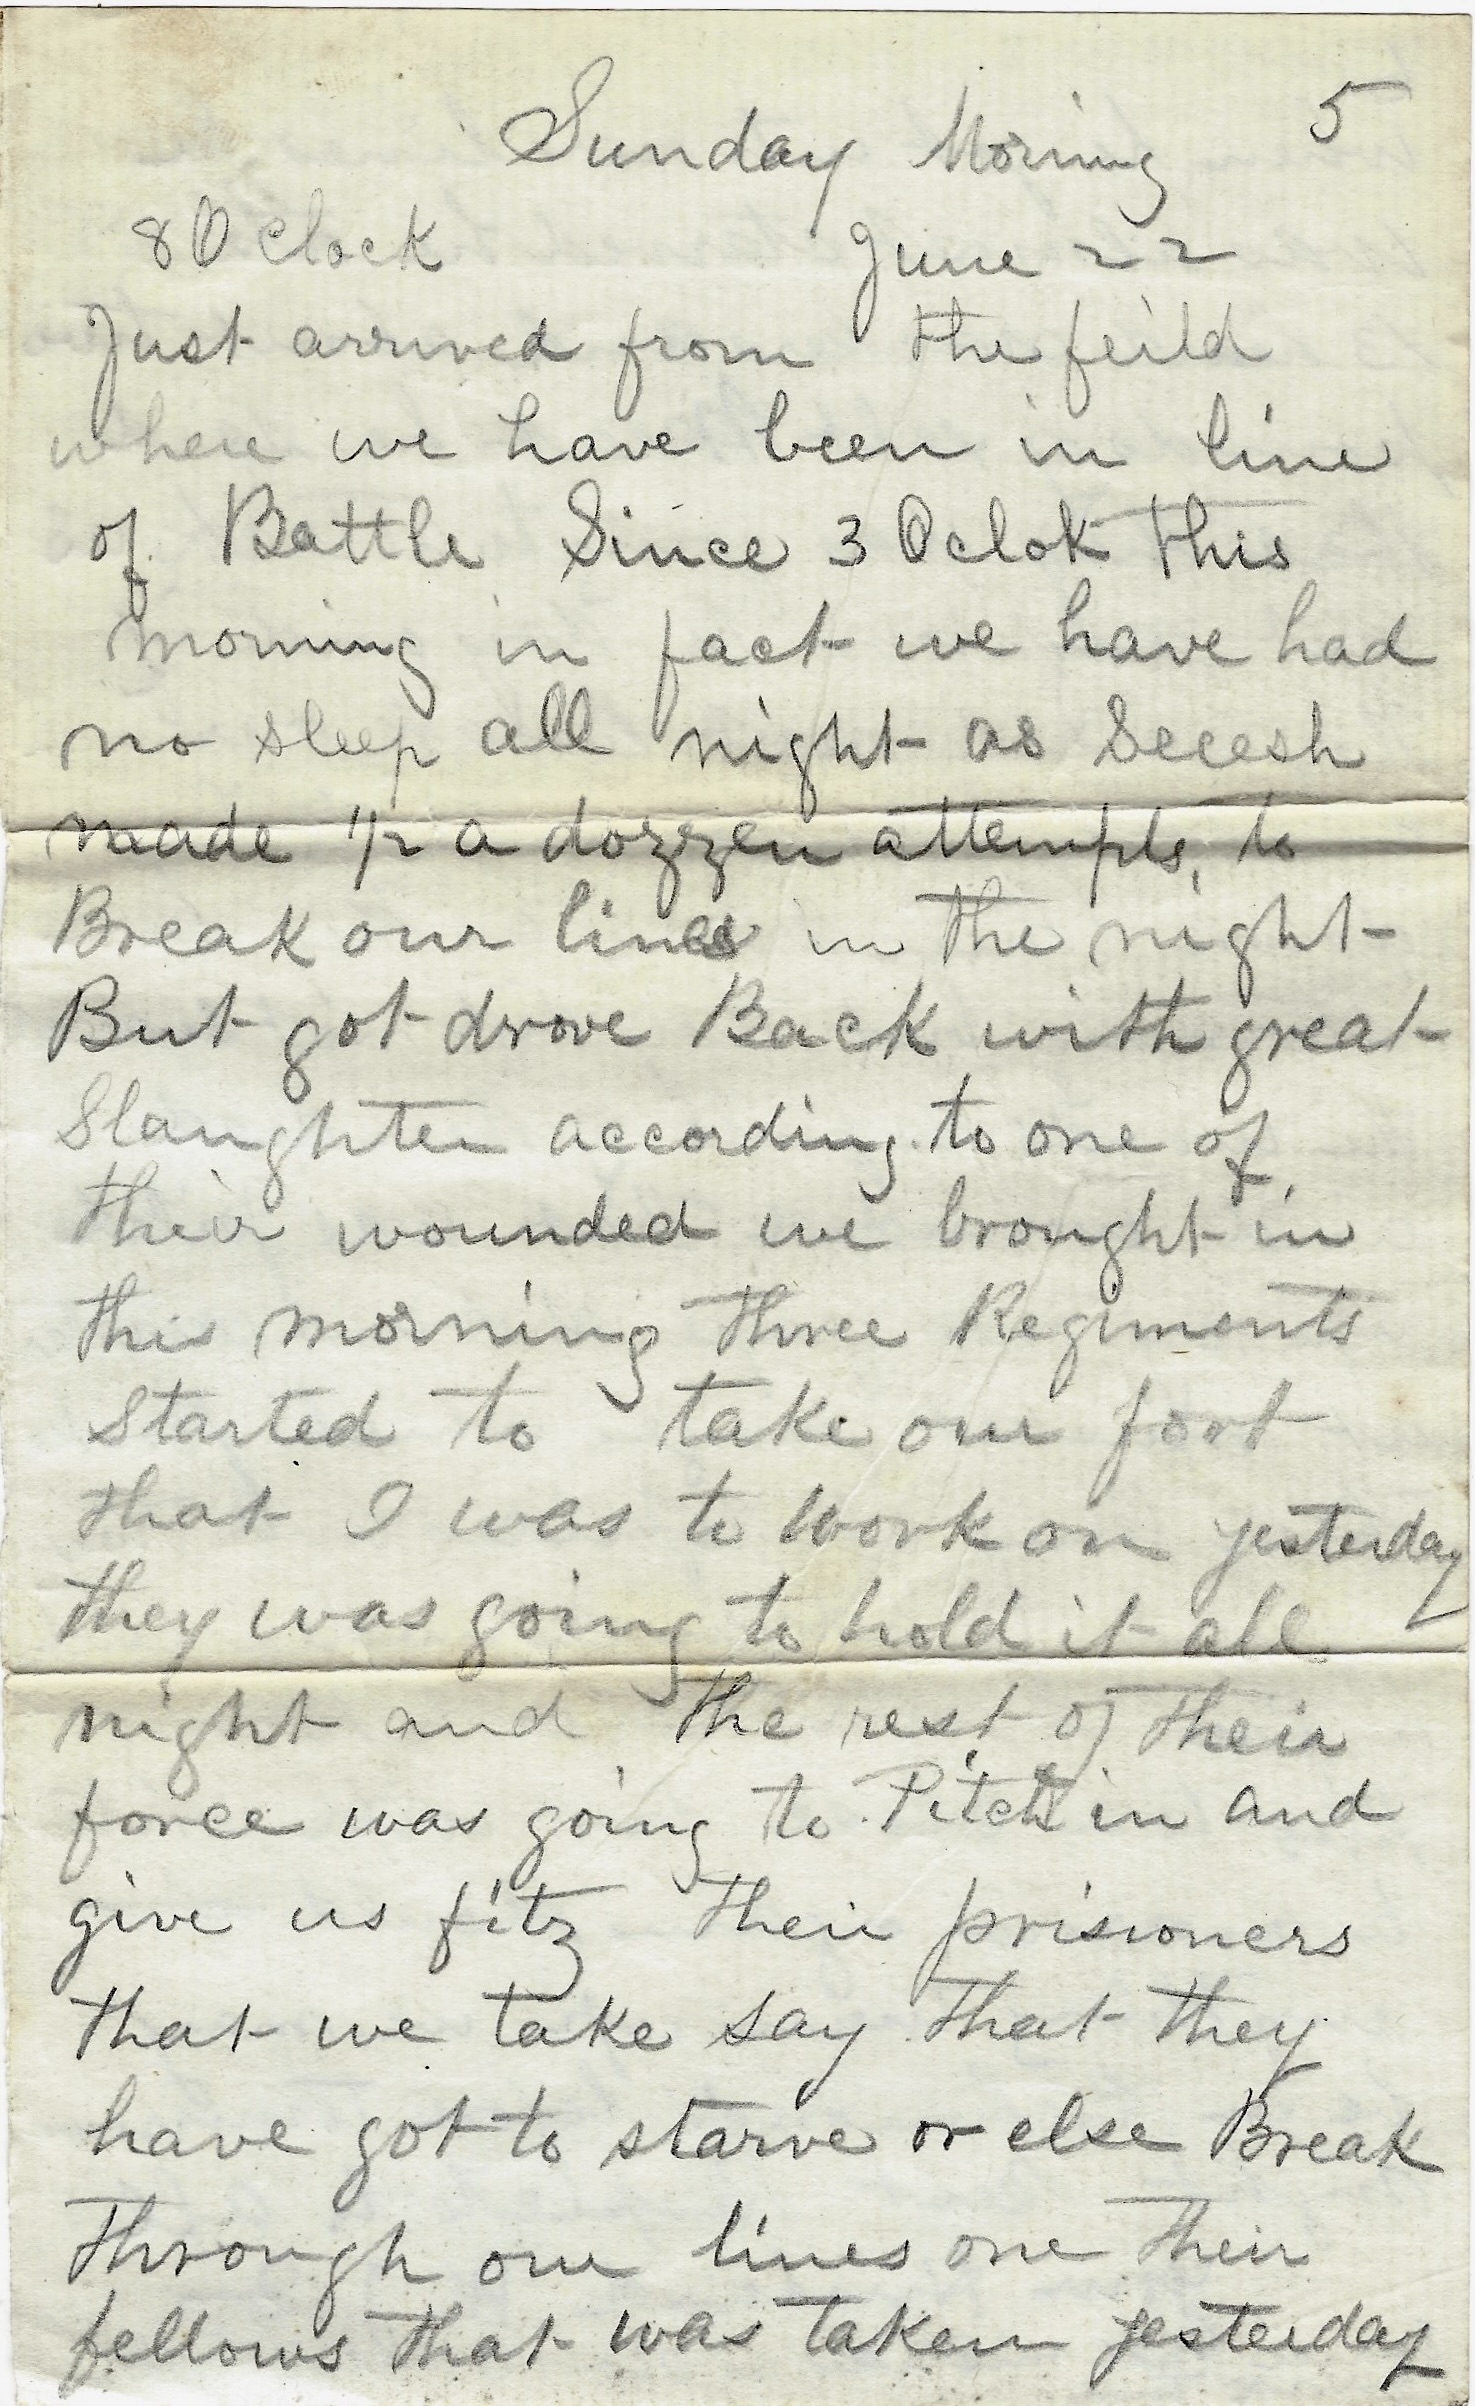 5
Sunday Morning
8 O clock June 22
Just arrived from the feild
where we have been in line
of Battle Since 3 Oclok this
morning in fact we have had
no sleep all night as Secesh
made 1/2 a dozzen attempts, to
Break our lines in the night
But got drove Back with great
Slaughter according to one of
their wounded we brought in
this morning three Regiments
started to take our fort
that I was to work on yesterday
they was going to hold it all
night and the rest of their
force was going to Pitch in and
give us fitz their prisioners
that we take say that they
have got to starve or else Break
through our lines one their
fellows that was taken yesterday